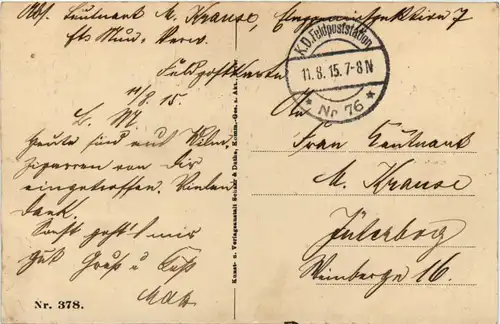 Abs. Leutnant M. Krause, Etappeninspektion 7
Feldpostkarte
11/8. 15.
L. M.
Heute sind auf
Zigarren von Dir
eingetroffen. Vielen
Dank.
Sonst geht's mir
gut Gruß u Kuß
Max
Nr. 378.
Kunst- u. Verlagsanstalt Seiner & Dathe, Komm-Ges. a. Akt.
K.D. Feldpoststation
11.8.15.7-8N
* Nr. 76 *
An
Frau Leutnant
M. Krause
Jüterbog
Weinberge 16.